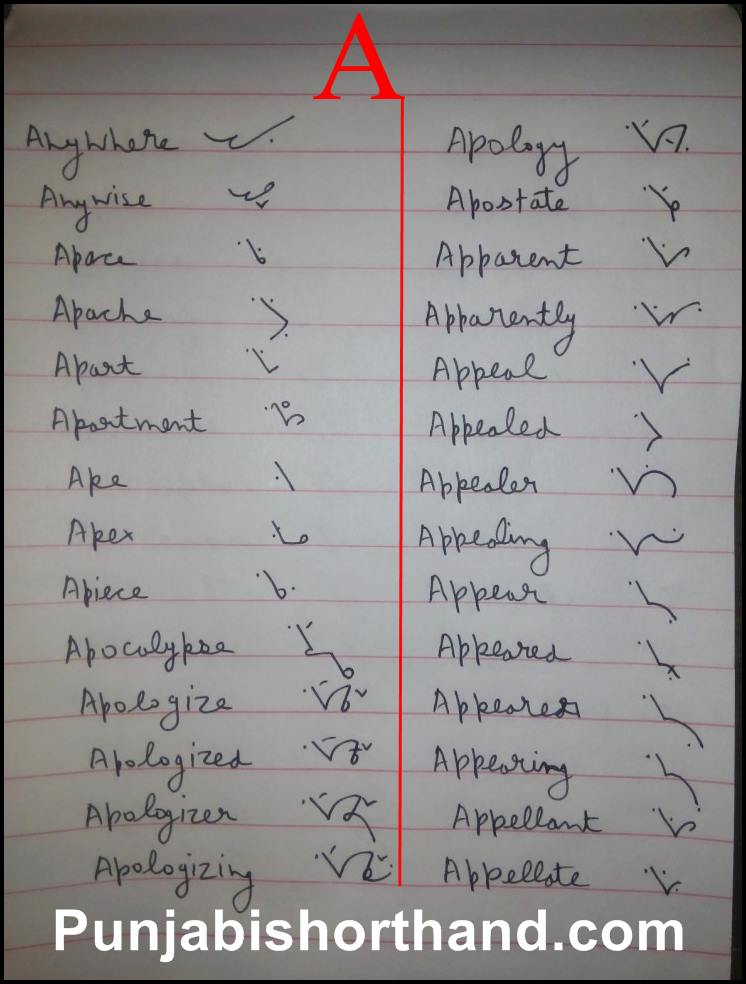 A
Anywhere
Anywise
Apace
Apache
Apart
Apartment
Ape
Apex
Apiece
Apocalypse
Apologize
Apologized
Apologizer
Apologizing
Apology
Apostate
Apparent
Apparently
Appeal
Appealed
Appealer
Appealing
Appear
Appeared
Appearer
Appearing
Appellant
Appellate
Punjabishorthand.com